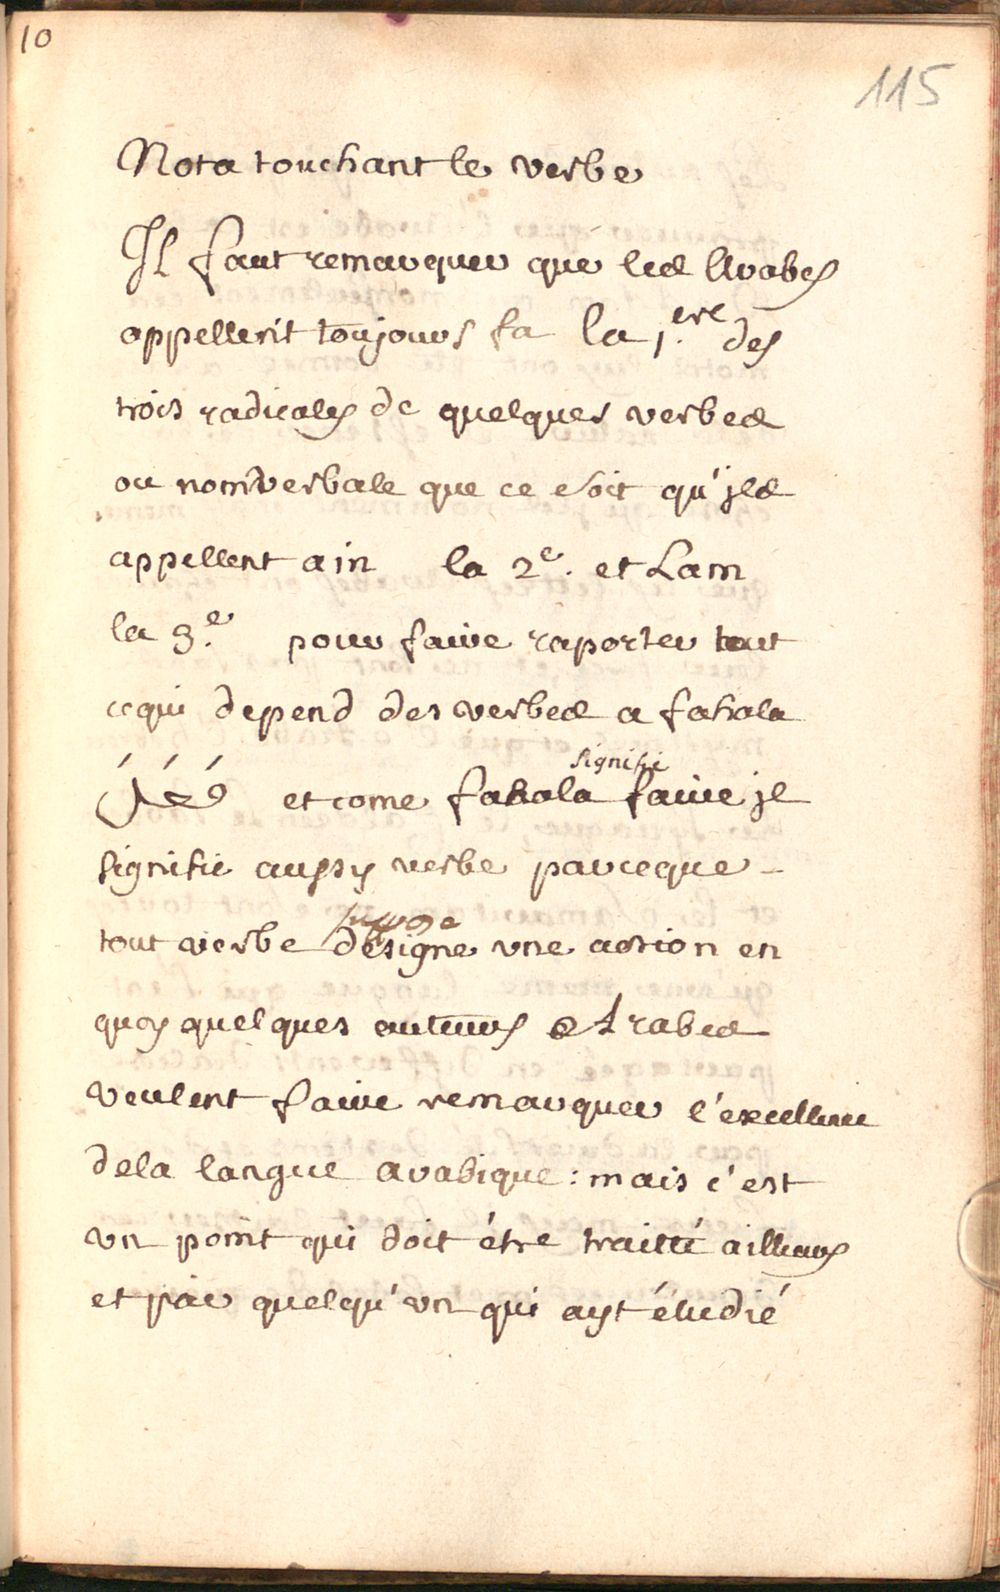 10
115
Nota touchant le verbe
Il faut remarquer que les Arabes
appellent toujours fa la 1.ere des
trois radicales de quelques verbes
ou nom verbale que ce soit qu'jls
appellent ain la 2e. et Lam
la 3.e pour faire raporter tout
cequi depend des verbes a fahala
فَعَلَ et come fahala signifie faire jl
signifie aussy verbe parceque
tout verbe suppose designe vne action en
quoy quelques auteurs Arabes
veulent faire remarquer l'excellence
dela langue arabique: mais c'est
vn point qui doit étre traitté ailleurs
et par quelqu'vn qui ayt étudié